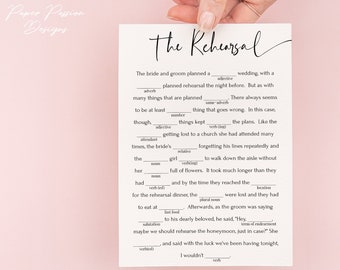 Paper Passion
Designs
The Rehearsal
The bride and groom planned a ________ wedding, with a
adjective
________ planned rehearsal the night before. But as with
adverb
many things that are planned ________. There always seems
same adverb
to be at least ________ thing that goes wrong. In this case,
number
though, ________ things kept ________ the plans. Like the
adjective verb (ing)
________ getting lost to a church she had attended many
attendant
times, the bride's ________ forgetting his lines repeatedly and
relative
the ________ girl ________ to walk down the aisle without
noun verb (ed)
her ________ full of flowers. It took much longer than they
noun
had ________ and by the time they reached the ________
verb (ed) location
for the rehearsal dinner, the ________ were lost and they had
plural noun
to eat at ________. Afterwards, as the groom was saying
fast food
________ to his dearly beloved, he said, "Hey, ________
salutation term of endearment
maybe we should rehearse the honeymoon, just in case?" She
________, and said with the luck we've been having tonight,
verb(ed)
I wouldn't ________.
verb